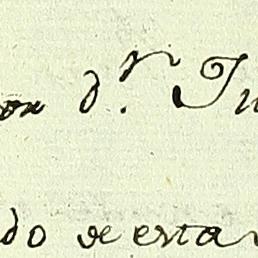 on d.r Ju
do de esta